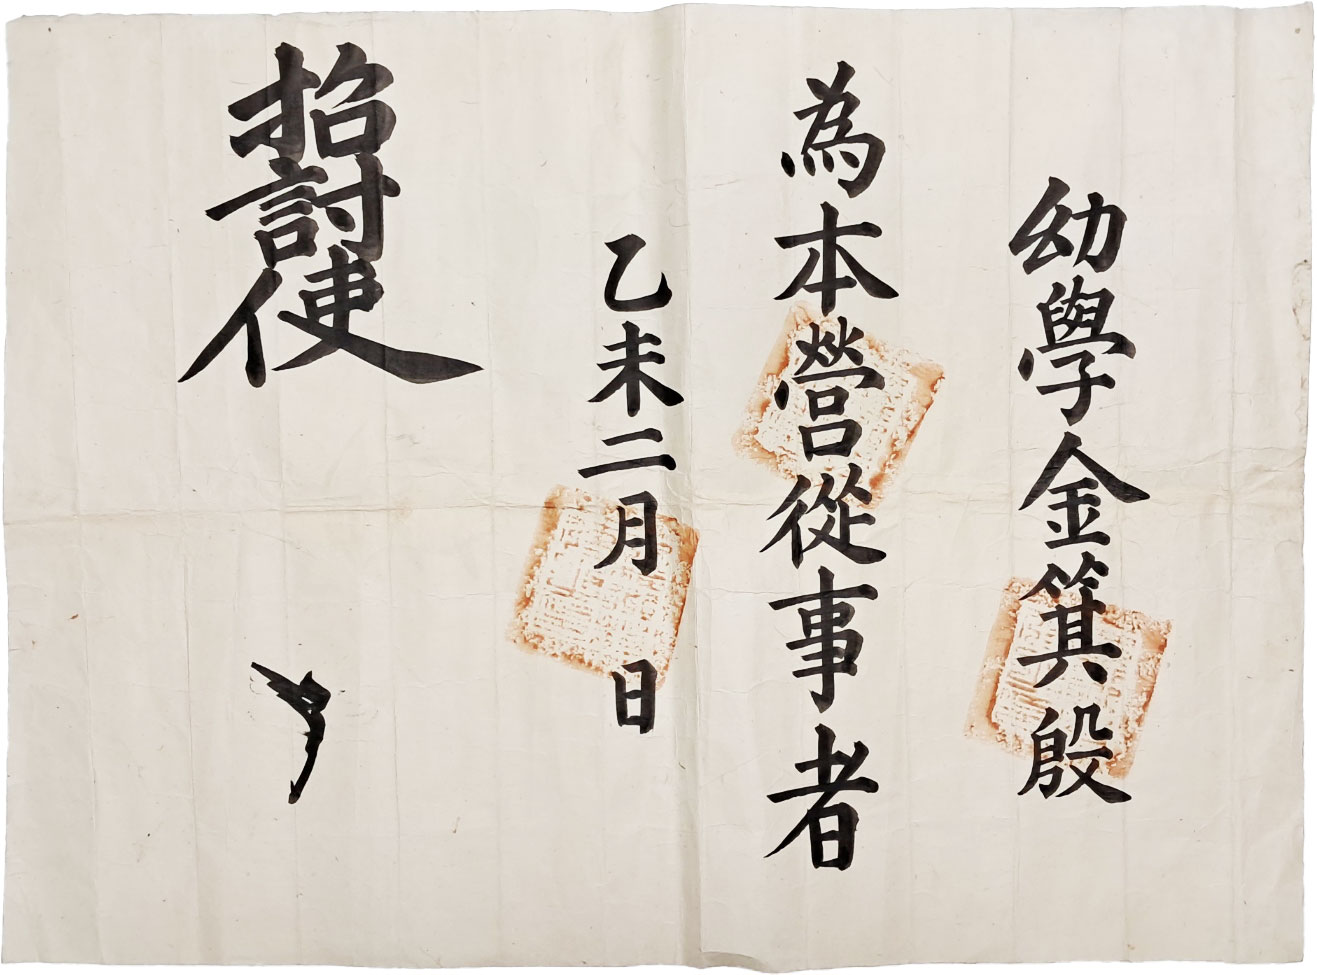 幼學金箕殷
為本營從事者
乙未二月 日
招討使